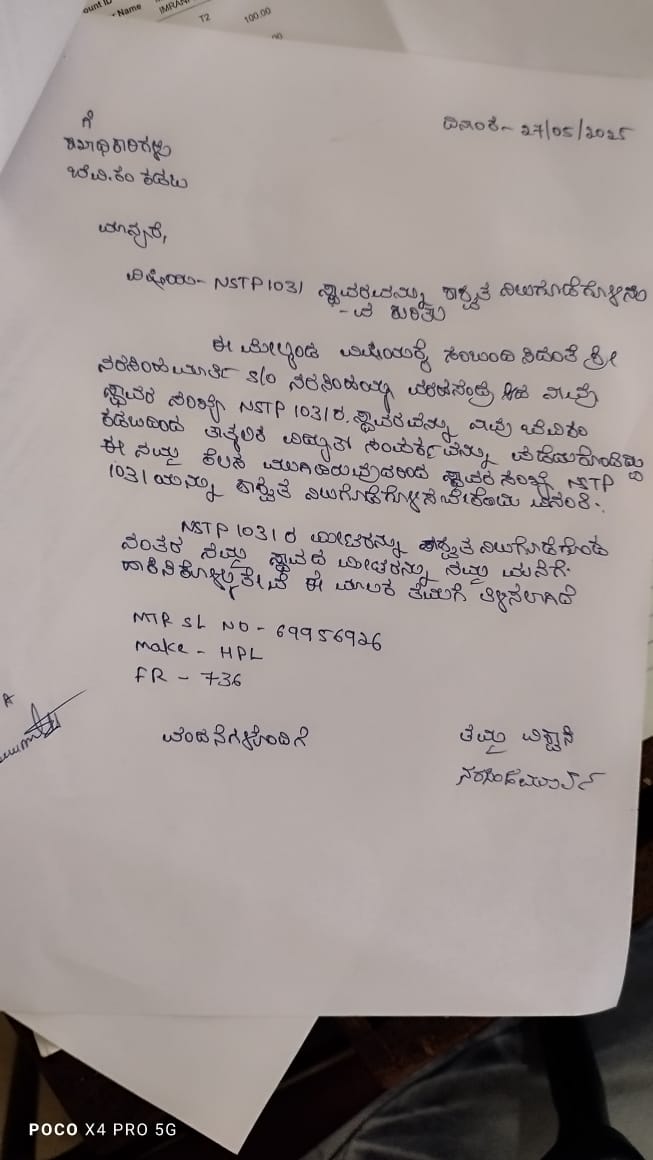 ount ID
Name
IMRAN
T2
100.00
ಗೆ
ದಿನಾಂಕ- 27/05/2025
ಶಾಖಾಧಿಕಾರಿಗಳು
ಬೆವಿ.ಕಂ ಕಡಬ
ಮಾನ್ಯರೆ,
ವಿಷಯ- NSTP1031 ಸ್ಥಾವರವನ್ನು ಶಾಶ್ವತ ನಿಲುಗೊಡೆಗೊಳ್ಳಿಸು
-ವ ಕುರಿತು
ಈ ಮೇಲ್ಕಂಡ ವಿಷಯಕ್ಕೆ ಸಂಬಂದಿಸಿದಂತೆ ಶ್ರೀ
ನರಸಿಂಹಮೂರ್ತಿ S/o ನರಸಿಂಹಯ್ಯ ನಾವು
ಸ್ಥಾವರ ಸಂಖ್ಯೆ NSTP 1031ರ ಸ್ಥಾವರವನ್ನು ನಾವು ಬೆವಿಕಂ
ಕಡಬದಿಂದ ತಾತ್ಕಲಿಕ ವಿದ್ಯುತ್ ಸಂಪರ್ಕವನ್ನು ಪಡೆದುಕೊಂಡಿದ್ದು
ಈ ನಮ್ಮ ಕೆಲಸ ಮುಗಿದಿರುವುದರಿಂದ ಸ್ಥಾವರ ಸಂಖ್ಯೆ NSTP
1031ಯನ್ನು ಶಾಶ್ವತ ನಿಲುಗೊಡೆಗೊಳ್ಳಿಸಬೇಕೆಂದು ವಿನಂತಿ.
NSTP 1031 ರ ಮೀಟರನ್ನು ಶಾಶ್ವತ ನಿಲುಗೊಡೆಗೊಂಡ
ನಂತರ ನಮ್ಮ ಮೀಟರನ್ನು ನಮ್ಮ ಮನೆಗೆ
ಈ ಮೂಲಕ ತಮಗೆ ತಿಳಿಸಲಾಗಿದೆ
MTR SL NO - 69956926
make - HPL
FR - 736
ವಂದನೆಗಳೊಂದಿಗೆ
ತಮ್ಮ ವಿಶ್ವಾಸಿ
ನರಸಿಂಹಮೂರ್ತಿ
POCO X4 PRO 5G